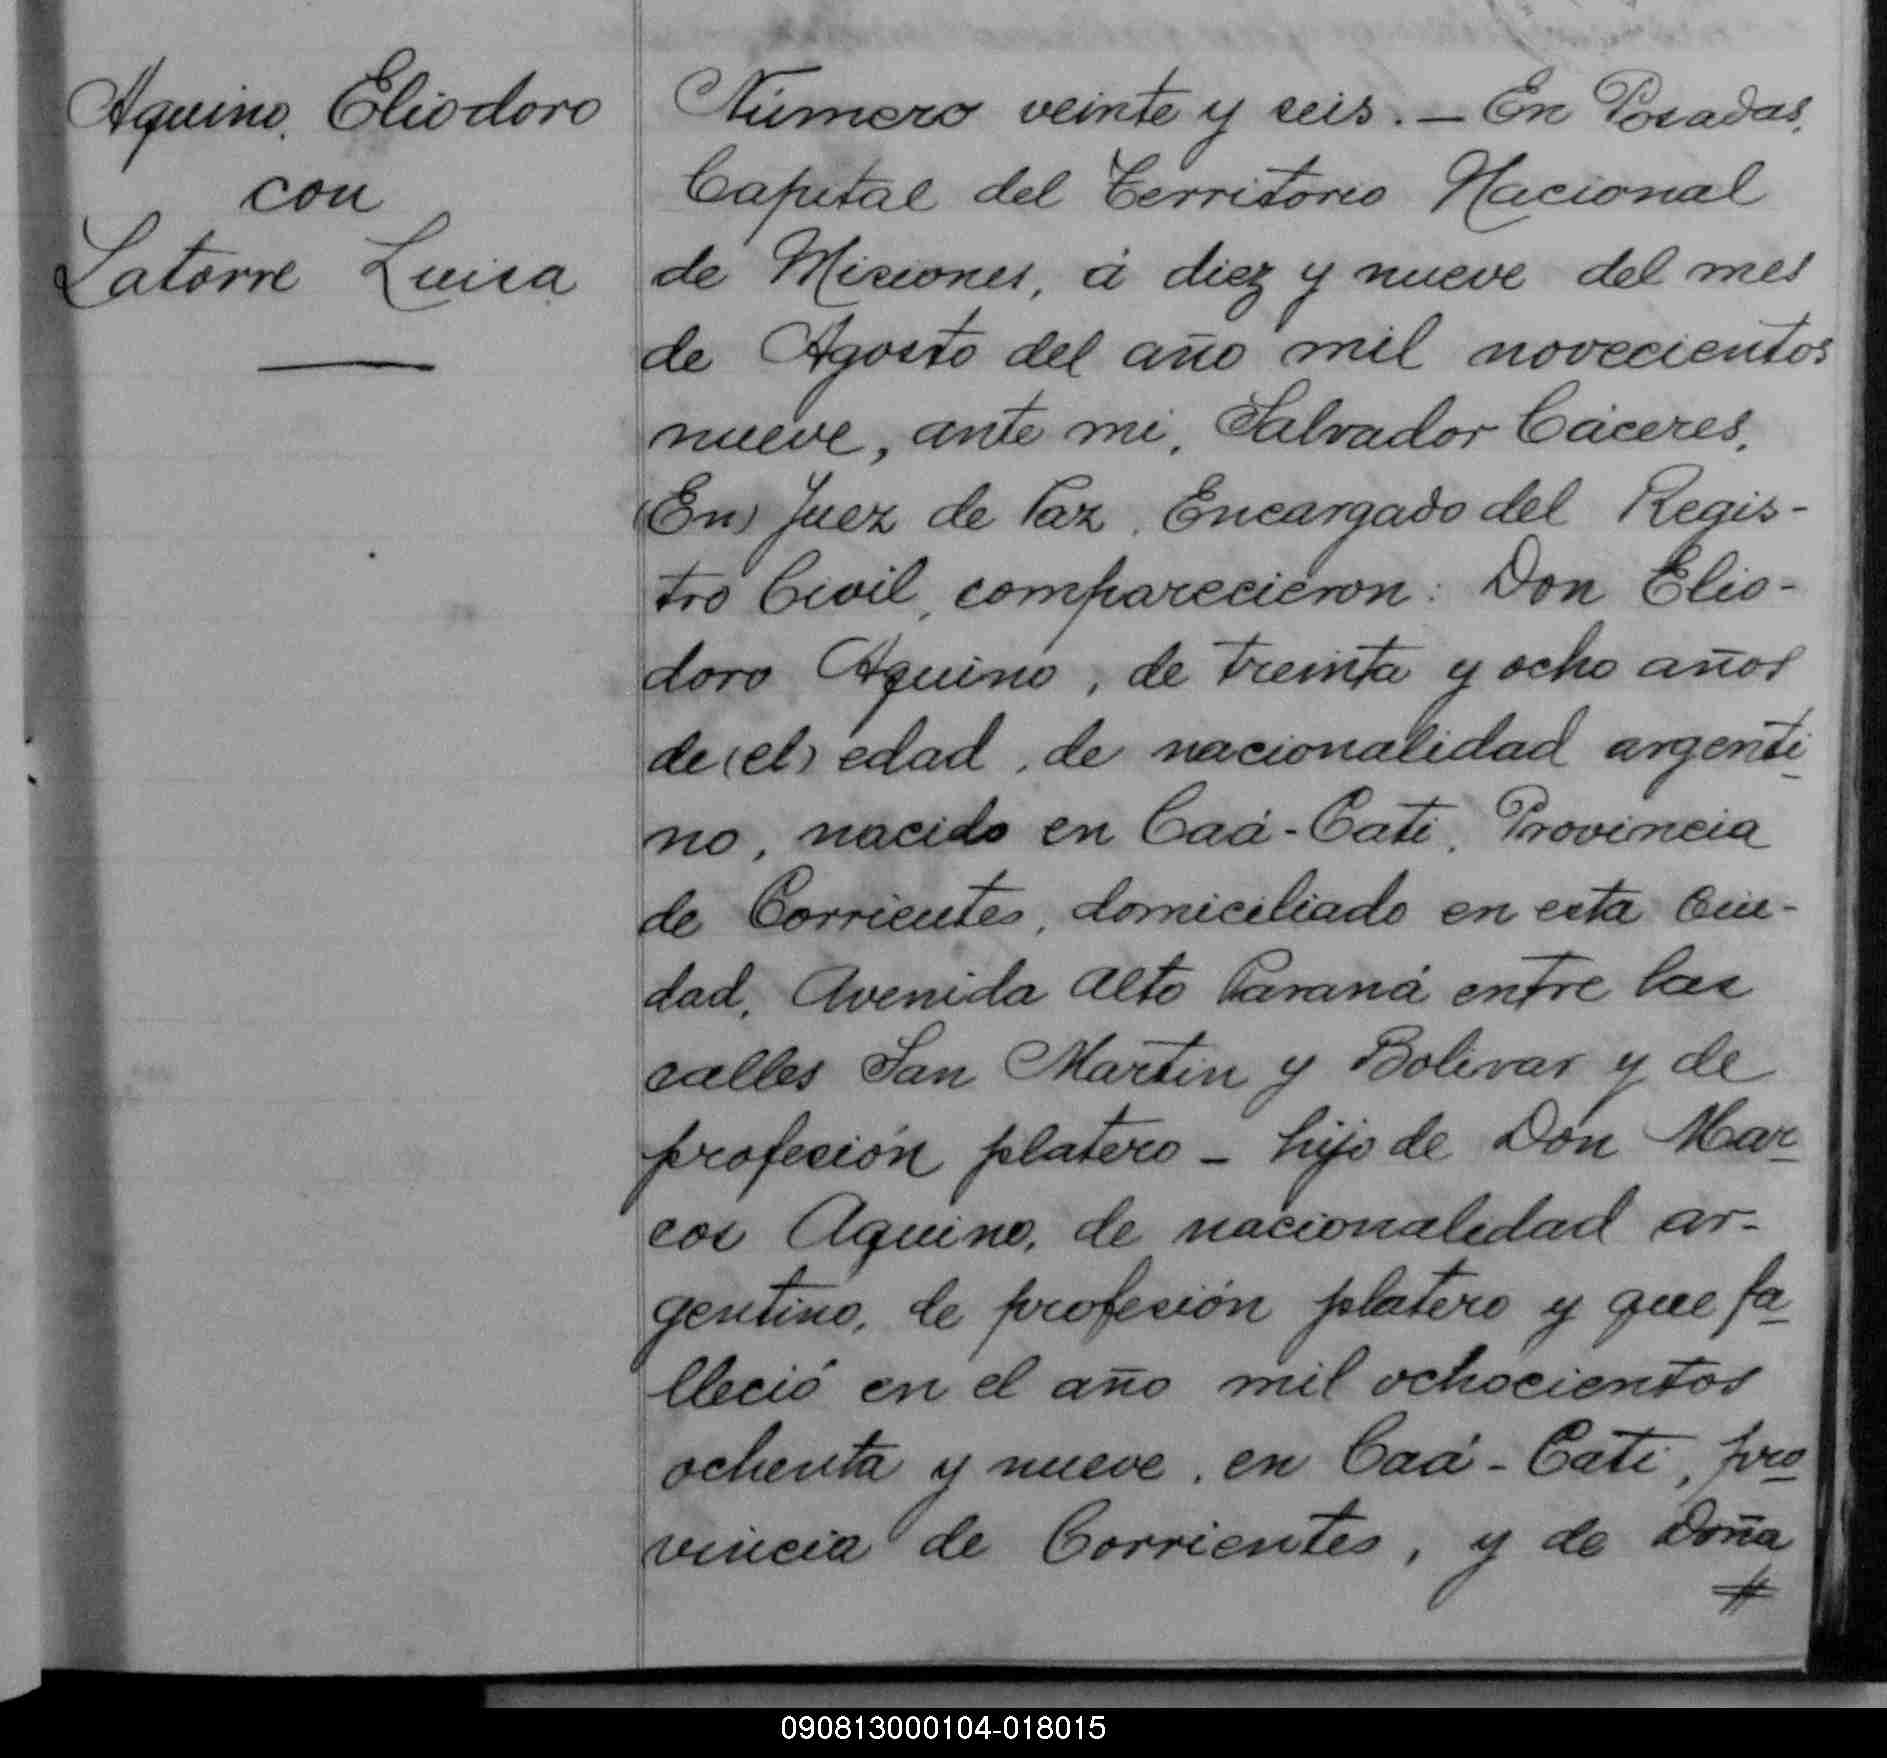 Aquino, Eliodoro
con
Latorre Luisa
Número veinte y seis. — En Posadas,
Capital del Territorio Nacional
de Misiones, á diez y nueve del mes
de Agosto del año mil novecientos
nueve, ante mi, Salvador Cáceres,
(En) Juez de Paz, Encargado del Regis-
tro Civil, comparecieron: Don Elio-
doro Aquino, de treinta y ocho años
de (el) edad, de nacionalidad argenti-
no, nacido en Caá-Cati, Provincia
de Corrientes, domiciliado en esta Ciu-
dad, Avenida Alto Paraná entre las
calles San Martin y Bolivar y de
profesión platero - hijo de Don Mar-
cos Aquino, de nacionalidad ar-
gentino, de profesión platero y que fa-
lleció en el año mil ochocientos
ochenta y nueve, en Caá-Cati, pro-
vincia de Corrientes, y de Doña
#
090813000104-018015